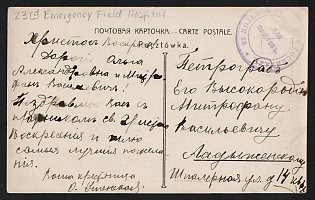 23rd Emergency Field Hospital.
ПОЧТОВАЯ КАРТОЧКА. — CARTE POSTALE.
Pocztówka.
Христос Воскресе
Дорогая Ольга
Александровна и
Васильевич!
Поздравляю Вас с
праздником Св. Христова
Воскресения и шлю
самыя лучшия пожела
ния.
О. Успенская.
Петроград
Его Высокородію
Митрофану
Васильевичу
Ладыженскому
Шпалерная ул. д 14 кв